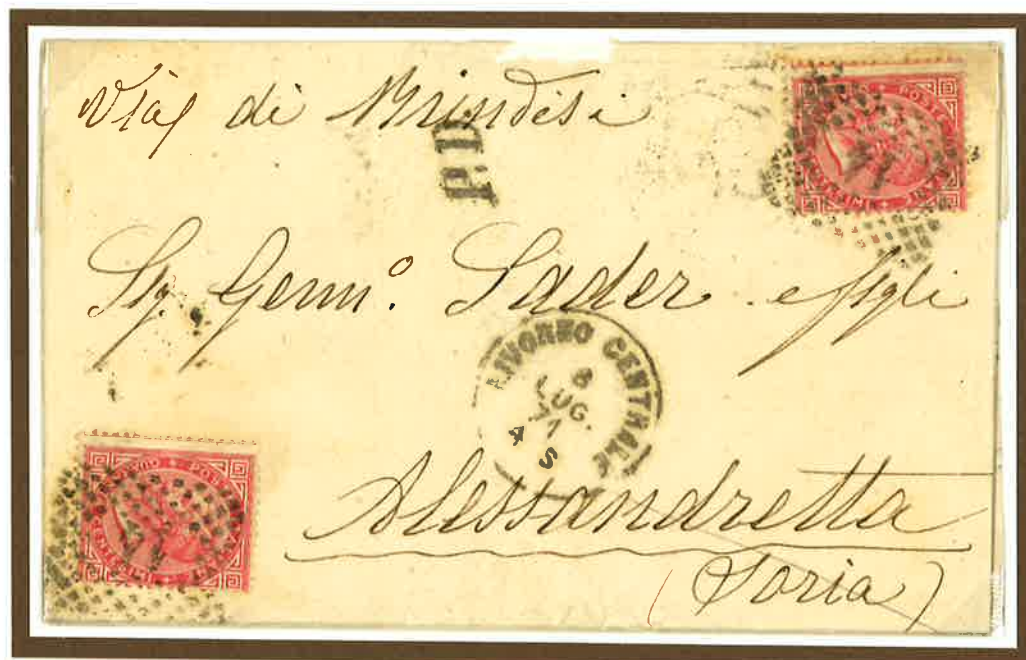 Via di Brindisi
P.D
Sig. Genn.º Sader e figli
LIVORNO CENTRALE
8
LUG.
71
4 S
Alessandretta
(Soria)